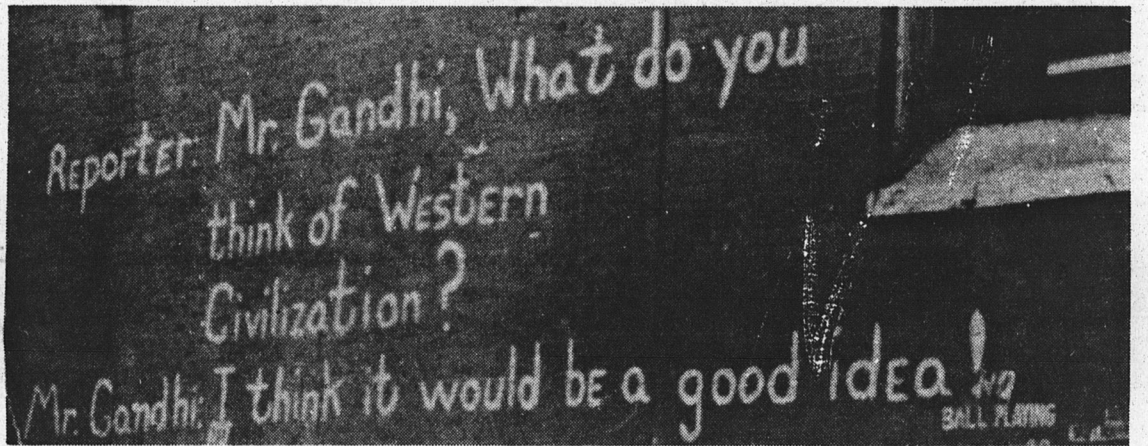 Reporter: Mr. Gandhi, What do you
think of Western
Civilization?
Mr. Gandhi: I think it would be a good idea!
NO
BALL PLAYING